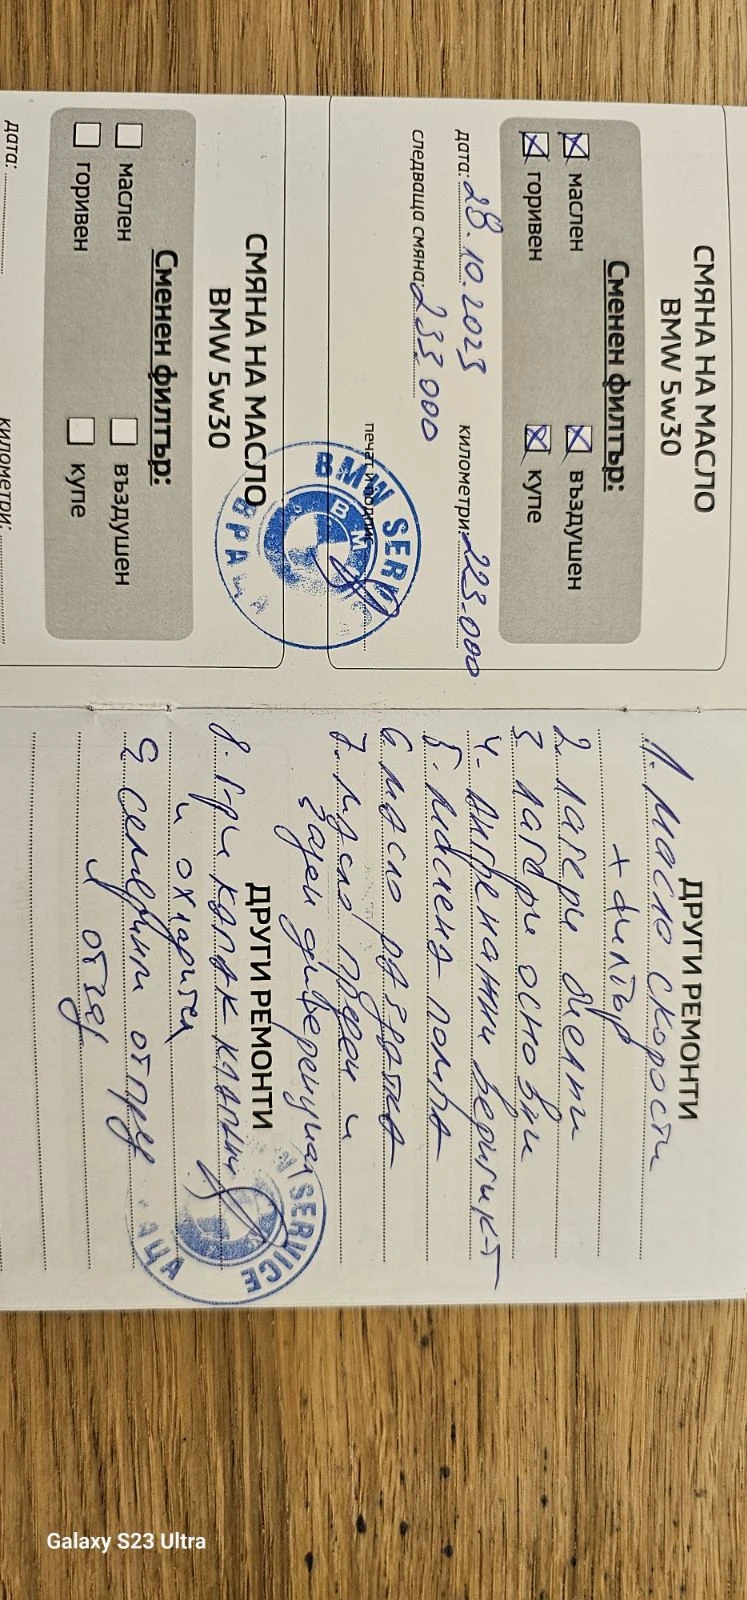 СМЯНА НА МАСЛО
BMW 5w30
Сменен филтър:
маслен
въздушен
горивен
купе
дата: 28.10.2023 километри: 223.000
следваща смяна: 233.000
печат и подпис
BMW SERV
ВРАЦА
BM
СМЯНА НА МАСЛО
BMW 5w30
Сменен филтър:
маслен
въздушен
горивен
купе
дата:
километри:
ДРУГИ РЕМОНТИ
1. Масло скорости
+ филтър
2. лагери биелни
3. лагери основни
4. Ангренажни верига к-т
5. маслена помпа
6. масло раздатка
7. Масло преден и
заден диференциал
ДРУГИ РЕМОНТИ
8. Г-ри капак клапани
и охладител
9. семеринг отпред
и отзад
W SERVICE
АЦА
Galaxy S23 Ultra